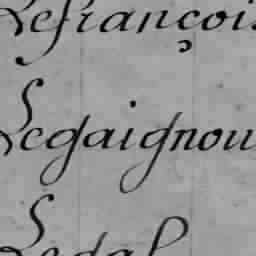 Lefrançois
Legaignou
Legal